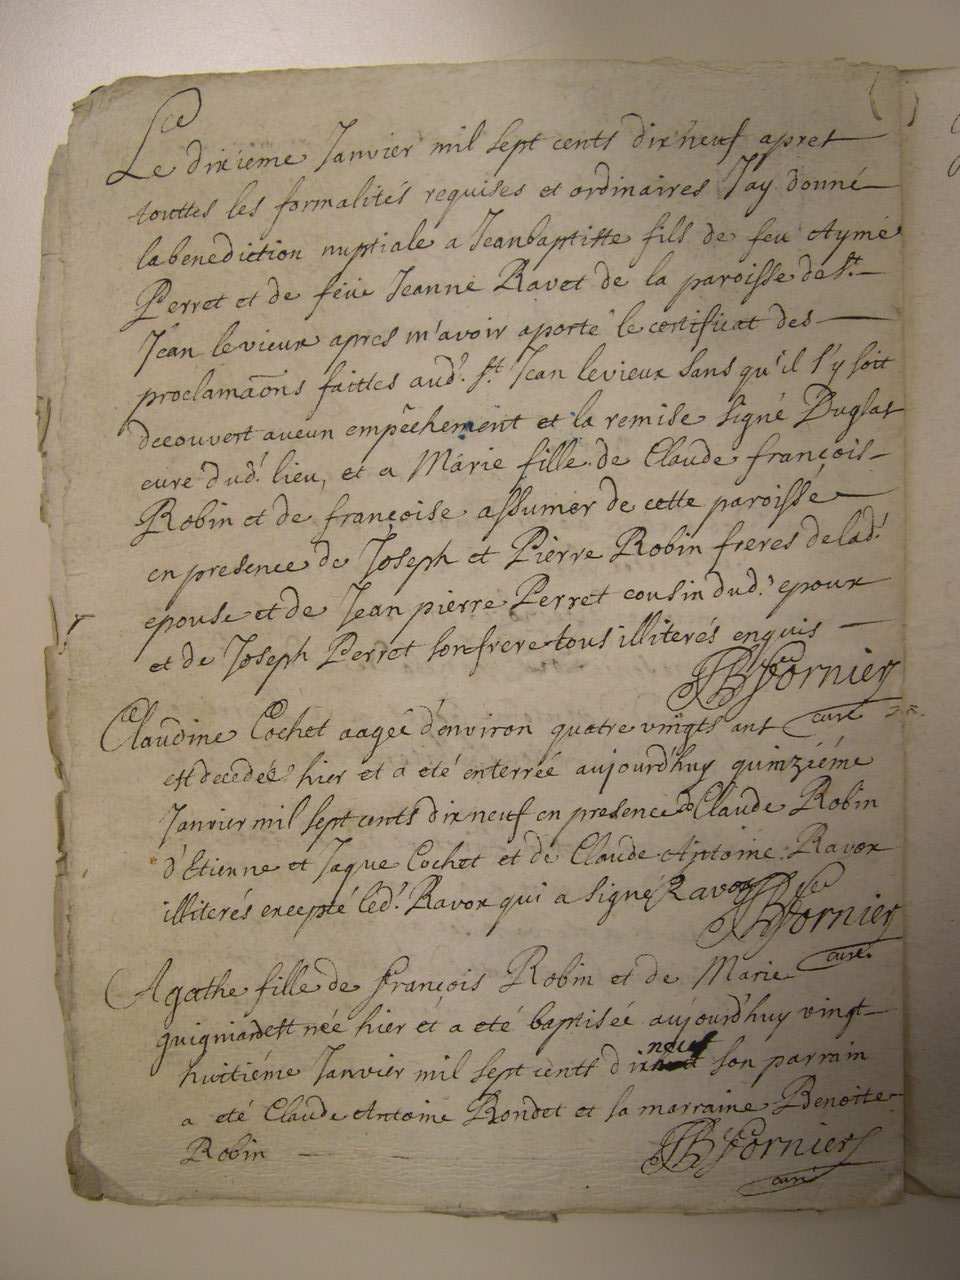 Le dixieme Janvier mil sept cents dixneuf apres
touttes les formalités requises et ordinaires Jay donné
la benediction nuptiale a Jeanbaptiste fils de feu Aymé
Perret et de feüe Jeanne Ravet de la paroisse de St.
Jean levieux apres m'avoir aporté le certificat des
proclamaõns faittes aud. St. Jean levieux sans qu'il s'y soit
decouvert aucun empêchement et la remise signé Duglas
curé dud. lieu, et a Marie fille de Claude françois
Robin et de françoise assumer de cette paroisse
en presence de Joseph et Pierre Robin freres de lad.
epouse et de Jean pierre Perret cousin dud. epoux
et de Joseph Perret son frere tous illiterés enquis
JB Fornier
curé
Claudine Cochet aagée d'environ quatre vingts ans
est decedée hier et a eté enterrée aujourd'huy quinziéme
Janvier mil sept cents dixneuf en presence de Claude Robin
d'Etienne et Jaque Cochet et de Claude Antoine Ravox
illiterés excepté led. Ravox qui a signé Ravox
JB Fornier
curé
Agathe fille de François Robin et de Marie
guigniard est née hier et a eté baptisée aujourd'huy vingt
huitiéme Janvier mil sept cents dixneuf son parrain
a eté Claude Antoine Rondet et sa marraine Benoitte
Robin
JB Fornier
curé